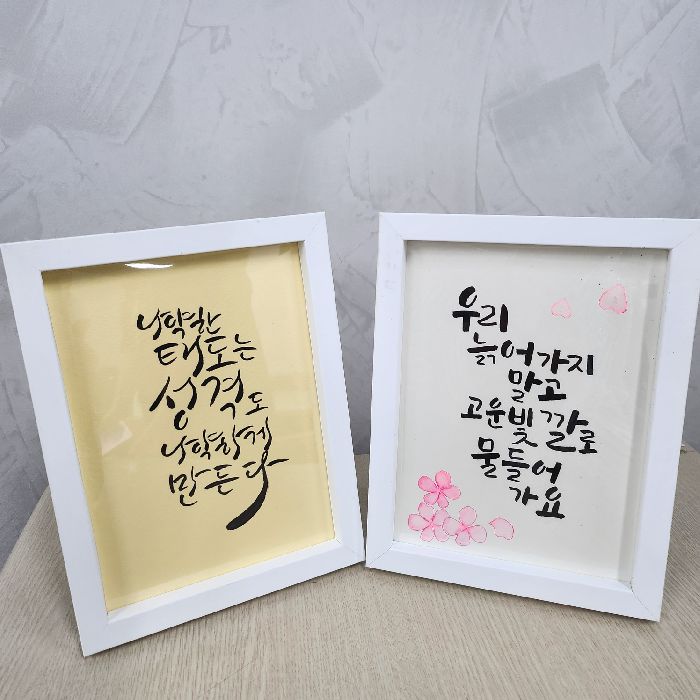 나약한
태도는
성격도
나약하게
만든다
우리
늙어가지
말고
고운빛깔로
물들어
가요